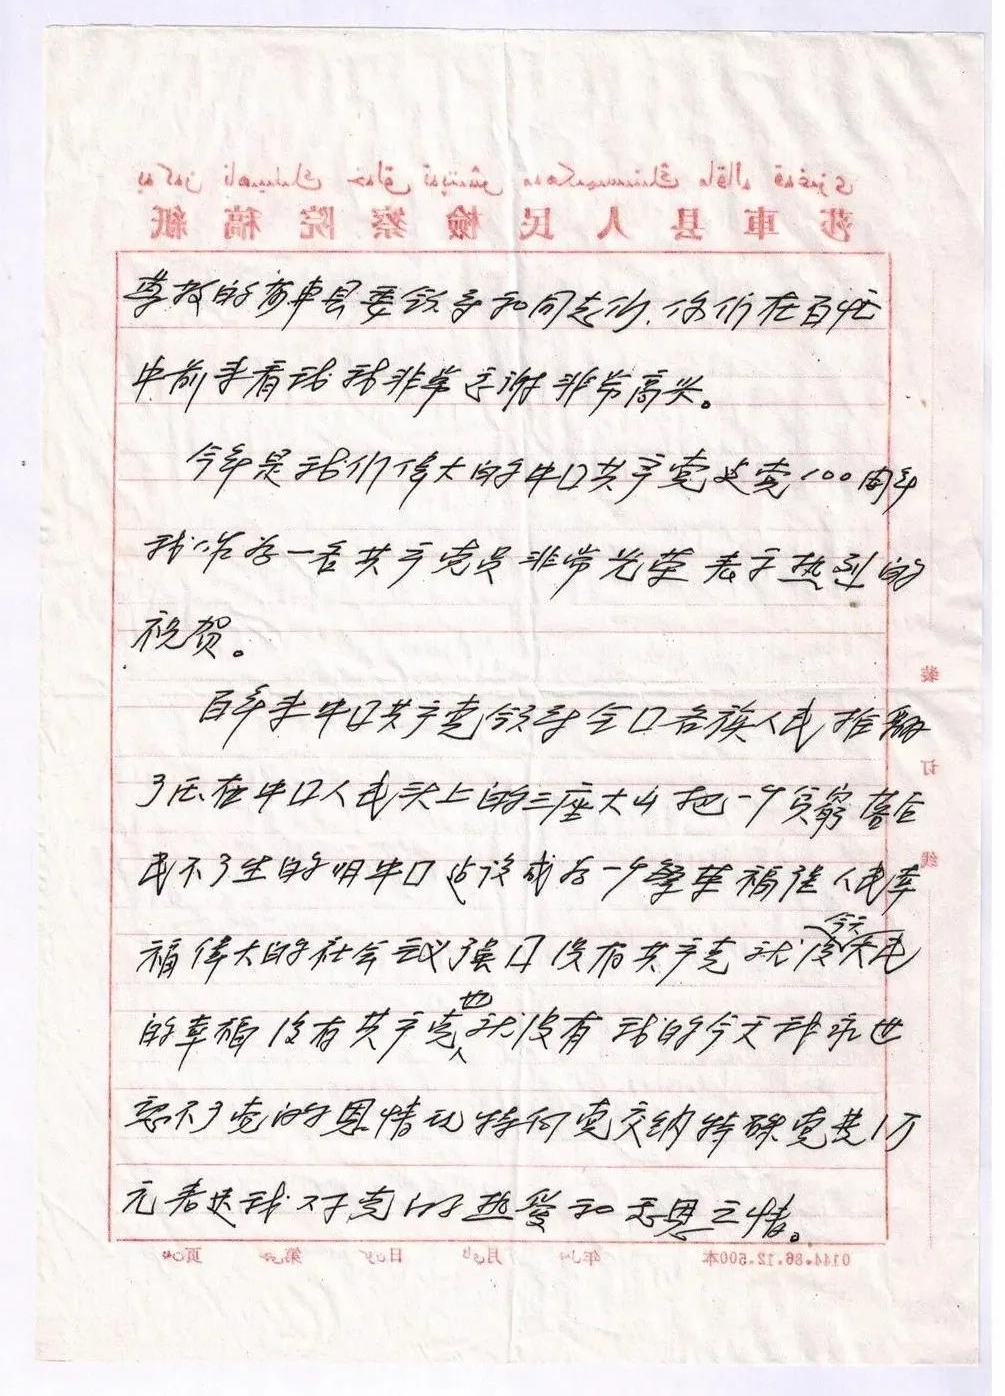 莎車县人民檢察院稿紙
尊敬的莎车县委领导和同志们、你们在百忙
中前来看我我非常感谢非常高兴。
今年是我们伟大的中口共产党建党100周年
我作为一名共产党员非常光荣表示热烈的
祝贺。
百年来中口共产党领导全口各族人民推翻
了压在中口人民头上的三座大山把一个贫穷落后
民不了生的旧中口建设成为一个繁荣福强人民幸
福伟大的社会主义强口没有共产党就没
今天
的幸福没有共产党也就没有我的今天我永世
忘不了党的恩情现特向党交纳特殊党费1万
元表达我对党的热爱和感恩之情。
装
订
线
0144.86.12.500本
年 月 日 第 页